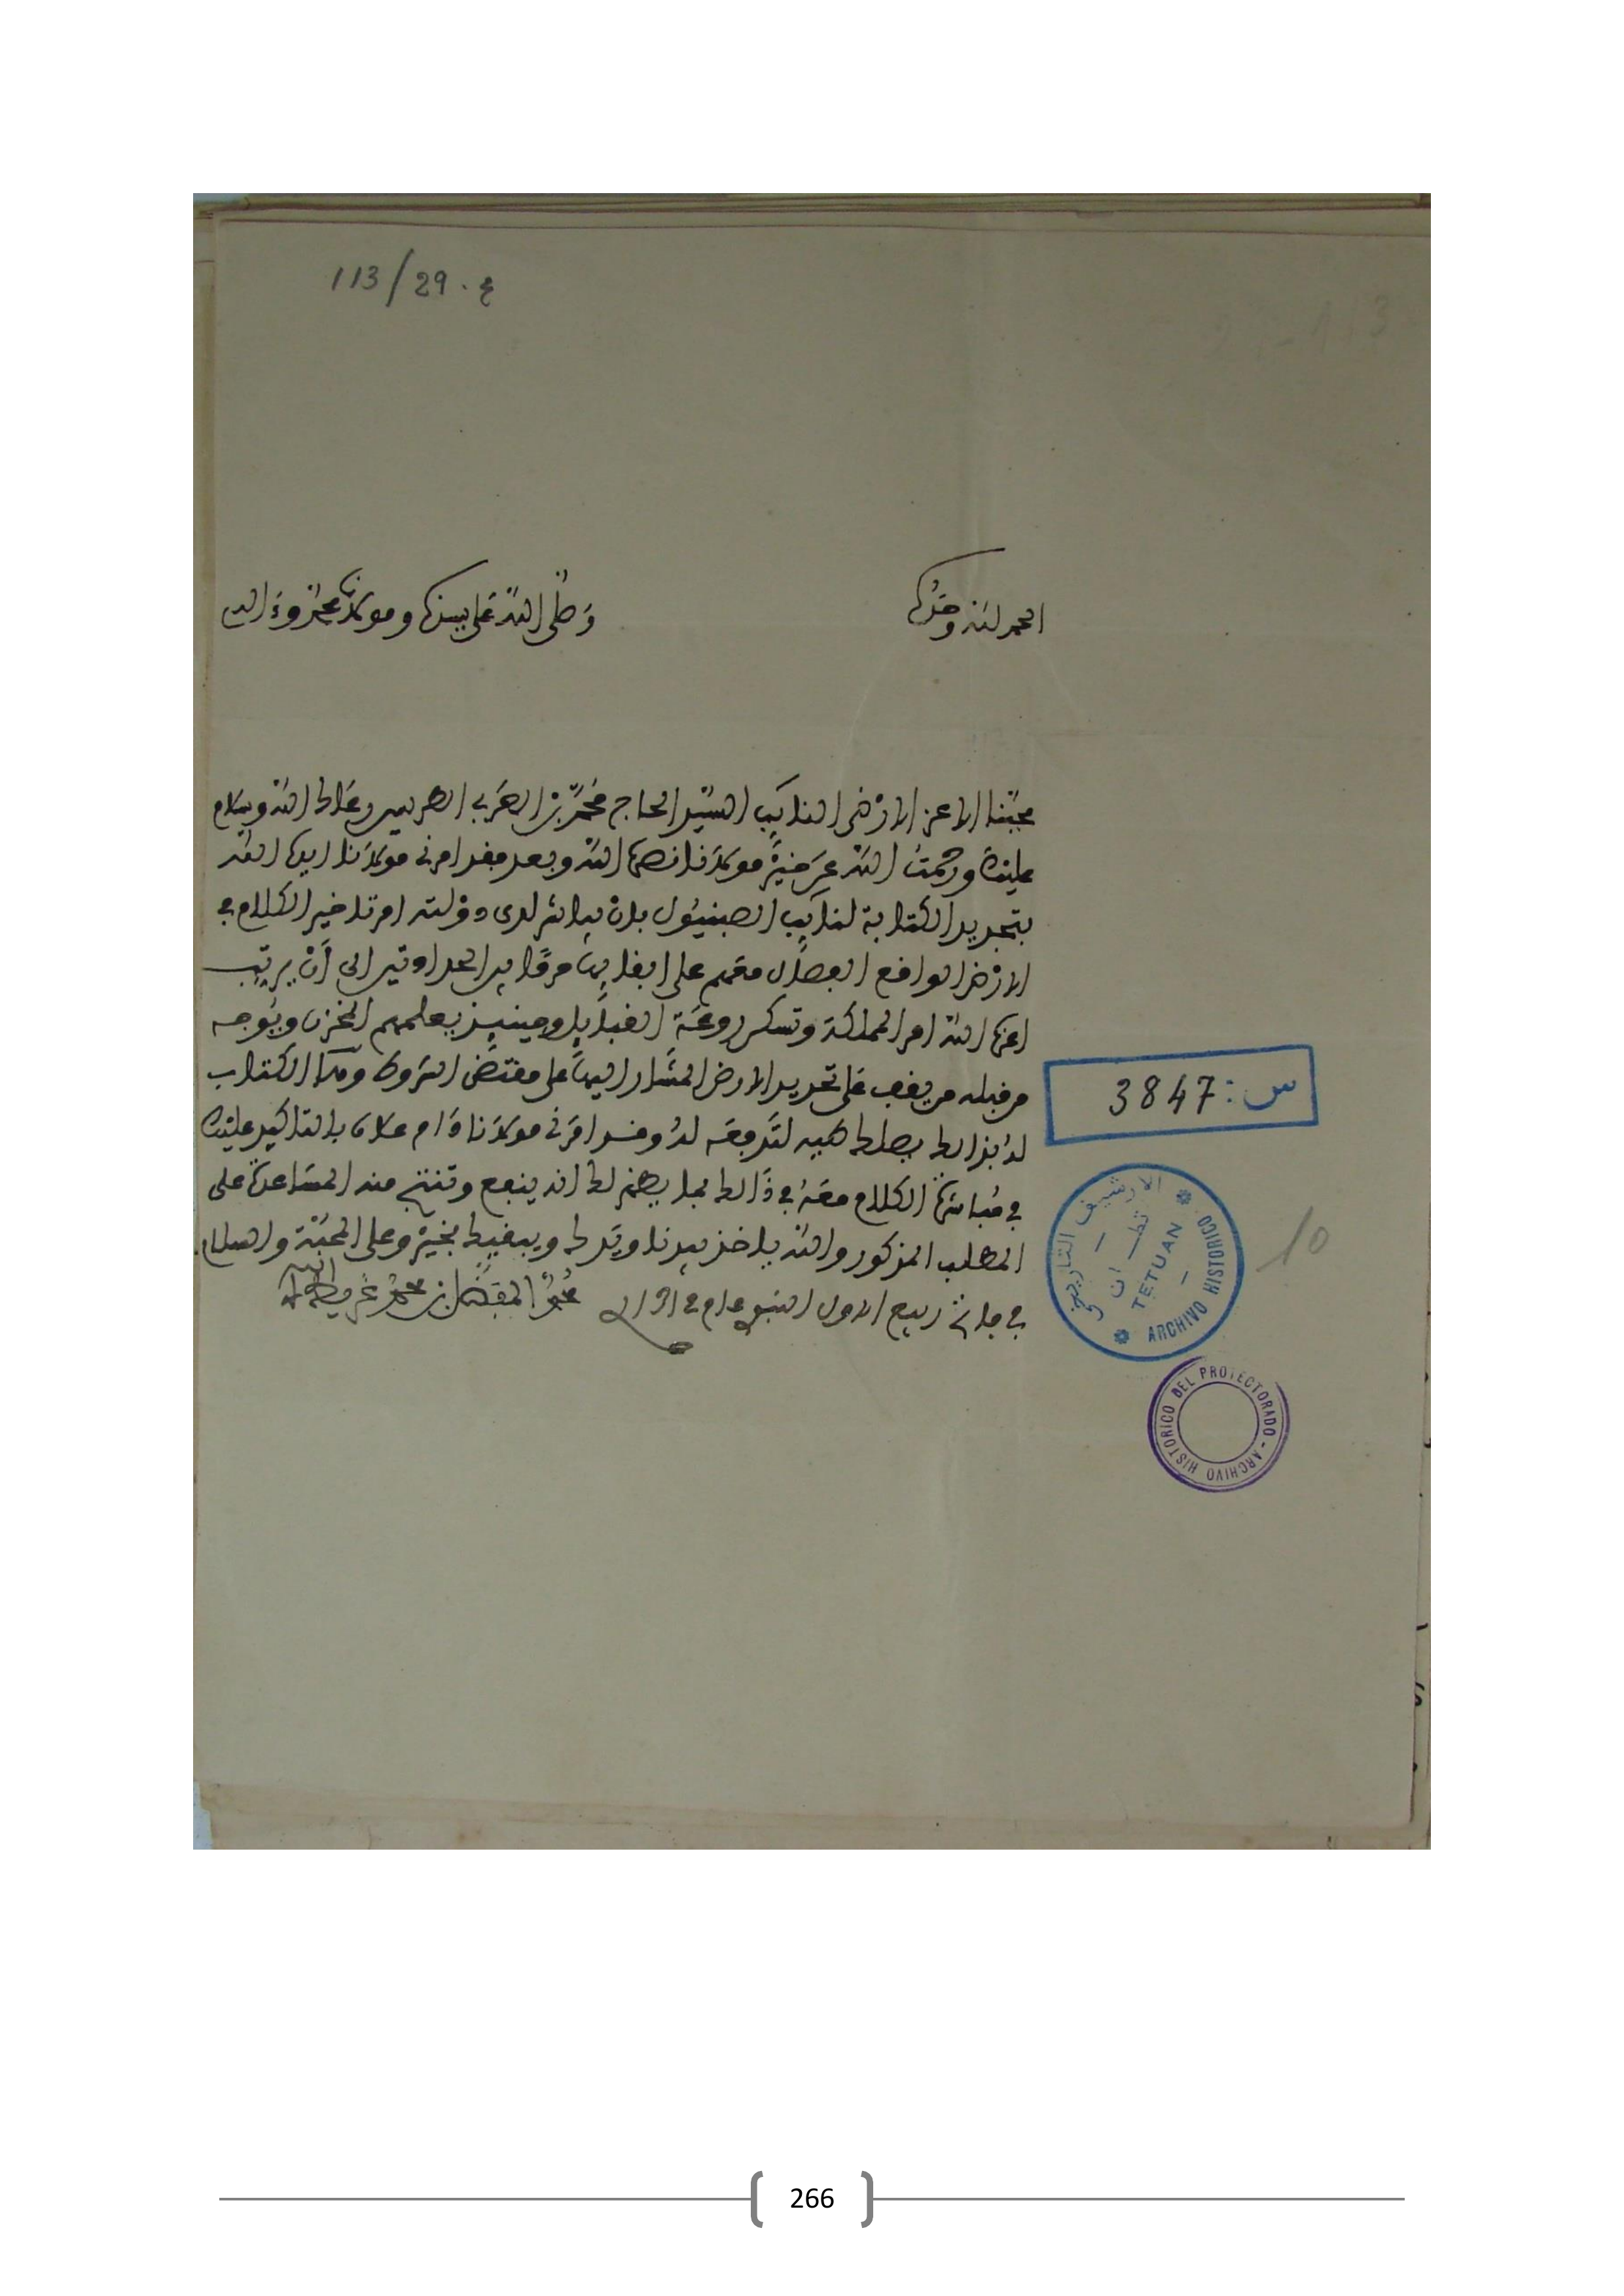 113/29.ع
الحمد لله وحده
وصلى الله على سيدنا ومولانا محمد وءاله
محبنا الاعز الارضى النايب السيد الحاج محمد بن العربي الطريس رعاك الله وسلام
عليك ورحمت الله عن خير مولانا نصره الله وبعد فقد امرني مولانا ايده الله
بتجديد الكتابة لنايب الصبنيول بان يباشر لدى دولته امر تاخير الكلام في
الارض الواقع الفصال معهم على ابقايها الى ان يرتب
اعزه الله امر المملكة وتسكن روعة القبايل وحينيذ يعلمهم المخزن ويوجه
من قبله من يقف على تحديد الارض المشار اليها على مقتضى الشروط وها الكتاب
له بذالك يصلك طيه لتدفعه له وقد امرني مولانا دام علاه بالتاكيد عليك
في مباشرة الكلام معه في ذالك بما يظهر لك انه ينفع وتنتج منه المساعدة على
المطلب المذكور والله ياخذ بيدنا ويدك ويبقيك بخير وعلى المحبة والسلام
في ربيع الاول النبوي عام
محمد المفضل بن محمد غريط
س: 3847
الارشيف التاريخي
تطـــوان
TETUAN
ARCHIVO HISTORICO
10
ARCHIVO HISTORICO DEL PROTECTORADO -
266